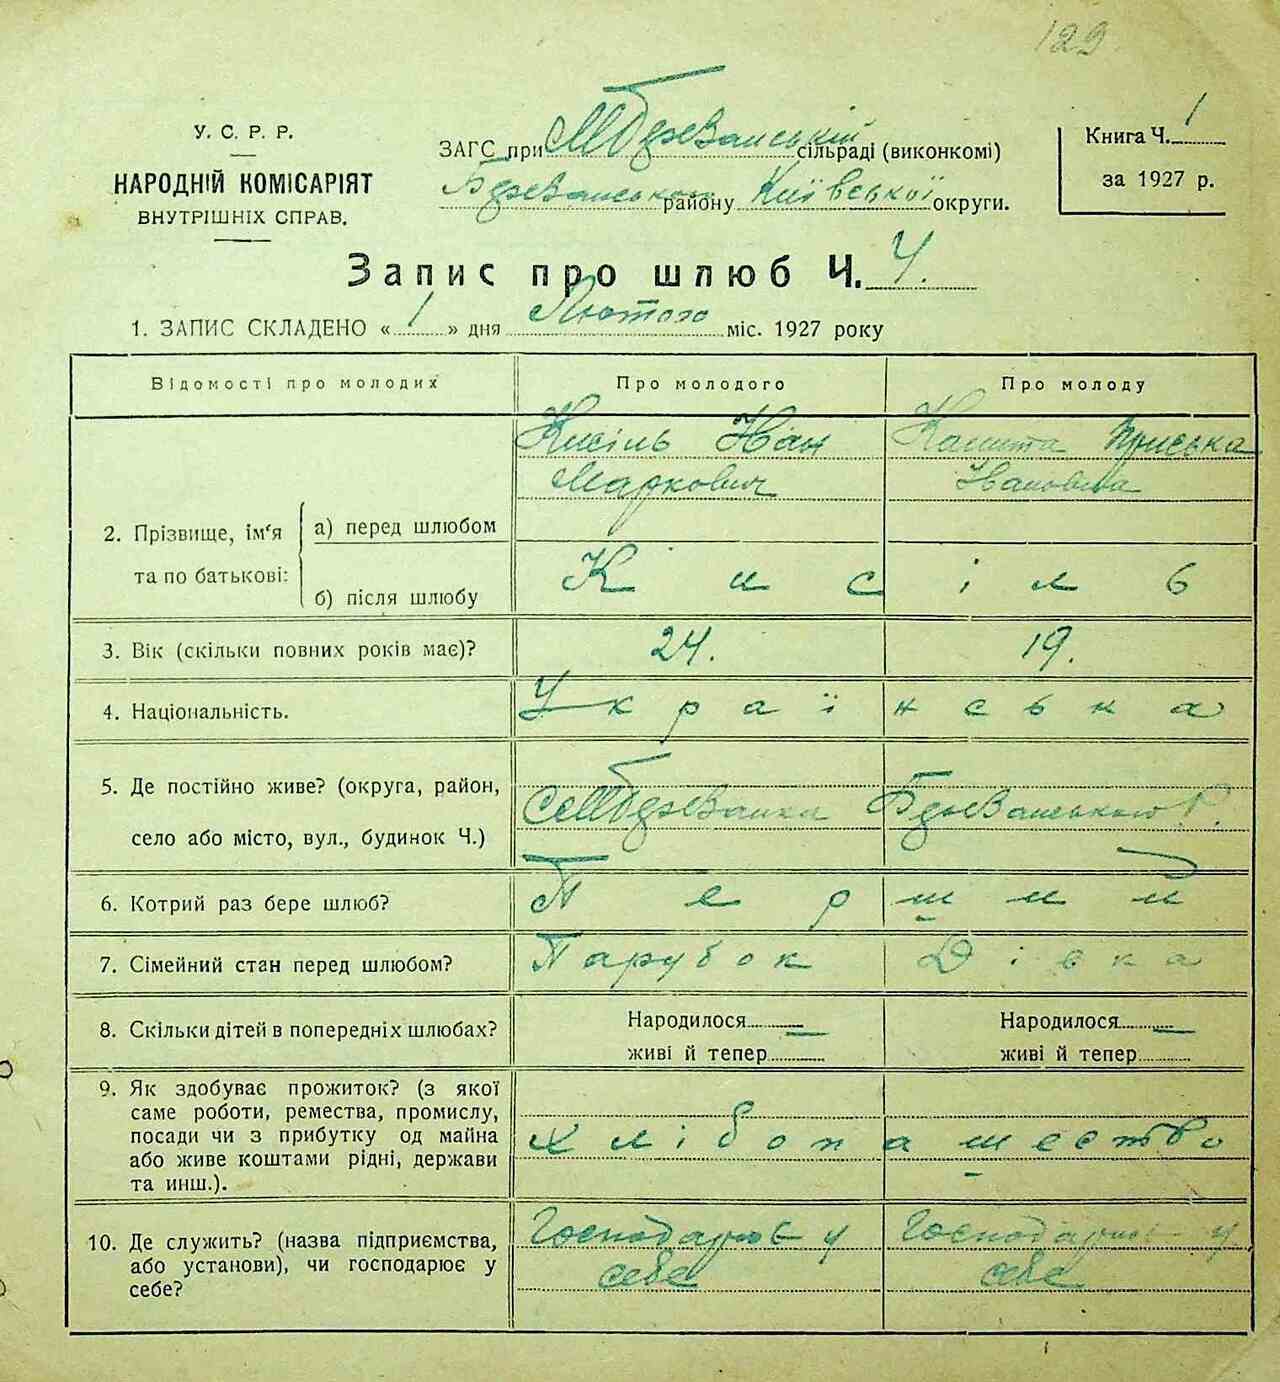 129
У. С. Р. Р.
НАРОДНІЙ КОМІСАРІЯТ
ВНУТРІШНІХ СПРАВ.
ЗАГС при сільраді (виконкомі)
району Київської округи.
Книга Ч. 1
за 1927 р.
Запис про шлюб Ч. 4.
1. ЗАПИС СКЛАДЕНО « 1 » дня Лютого міс. 1927 року
Відомості про молодих Про молодого Про молоду
2. Прізвище, ім‘я та по батькові:
а) перед шлюбом
Кисіль Іван
Маркович
Приська
Івановна
б) після шлюбу
Кисіль
3. Вік (скільки повних років має)? 24. 19.
4. Національність. Українська
5. Де постійно живе? (округа, район,
село або місто, вул., будинок Ч.)
6. Котрий раз бере шлюб? Перший
7. Сімейний стан перед шлюбом? Парубок Дівка
8. Скільки дітей в попередніх шлюбах? Народилося — Народилося —
живі й тепер живі й тепер
9. Як здобуває прожиток? (з якої
саме роботи, ремества, промислу,
посади чи з прибутку од майна
або живе коштами рідні, держави
та инш.).
хлібопашество
10. Де служить? (назва підприємства,
або установи), чи господарює у
себе?
Господарює у
себе
Господарює у
себе